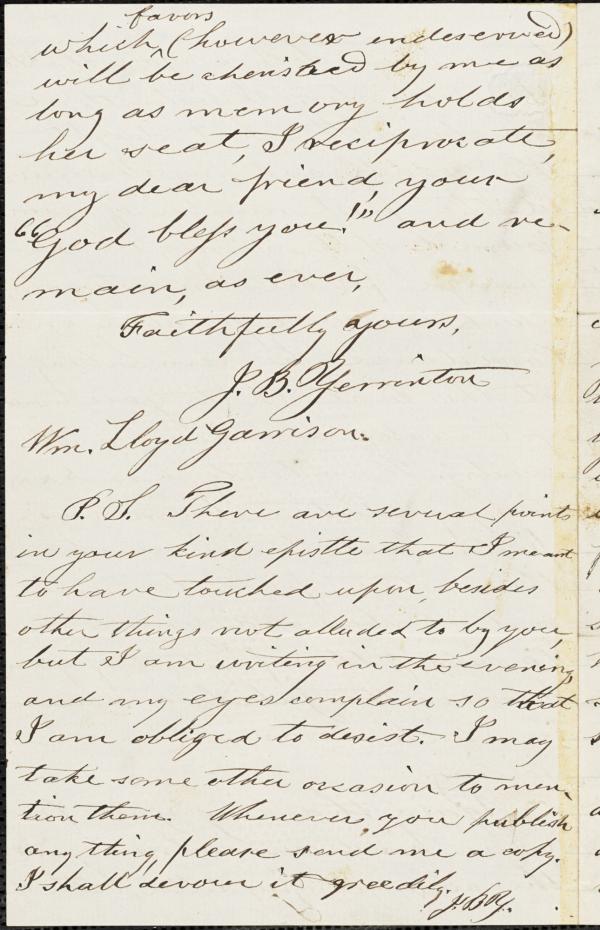 favors
which, (however undeserved)
will be cherished by me as
long as memory holds
her seat, I reciprocate,
my dear friend, your
"God bless you!" and re-
main, as ever,
Faithfully yours,
J. B. Yerrinton
Wm. Lloyd Garrison.
P. S. There are several points
in your kind epistle that I meant
to have touched upon, besides
other things not alluded to by you,
but I am writing in the evening,
and my eyes complain so that
I am obliged to desist. I may
take some other occasion to men-
tion them. Whenever you publish
any thing, please send me a copy.
I shall devour it greedily.
J. B. Y.